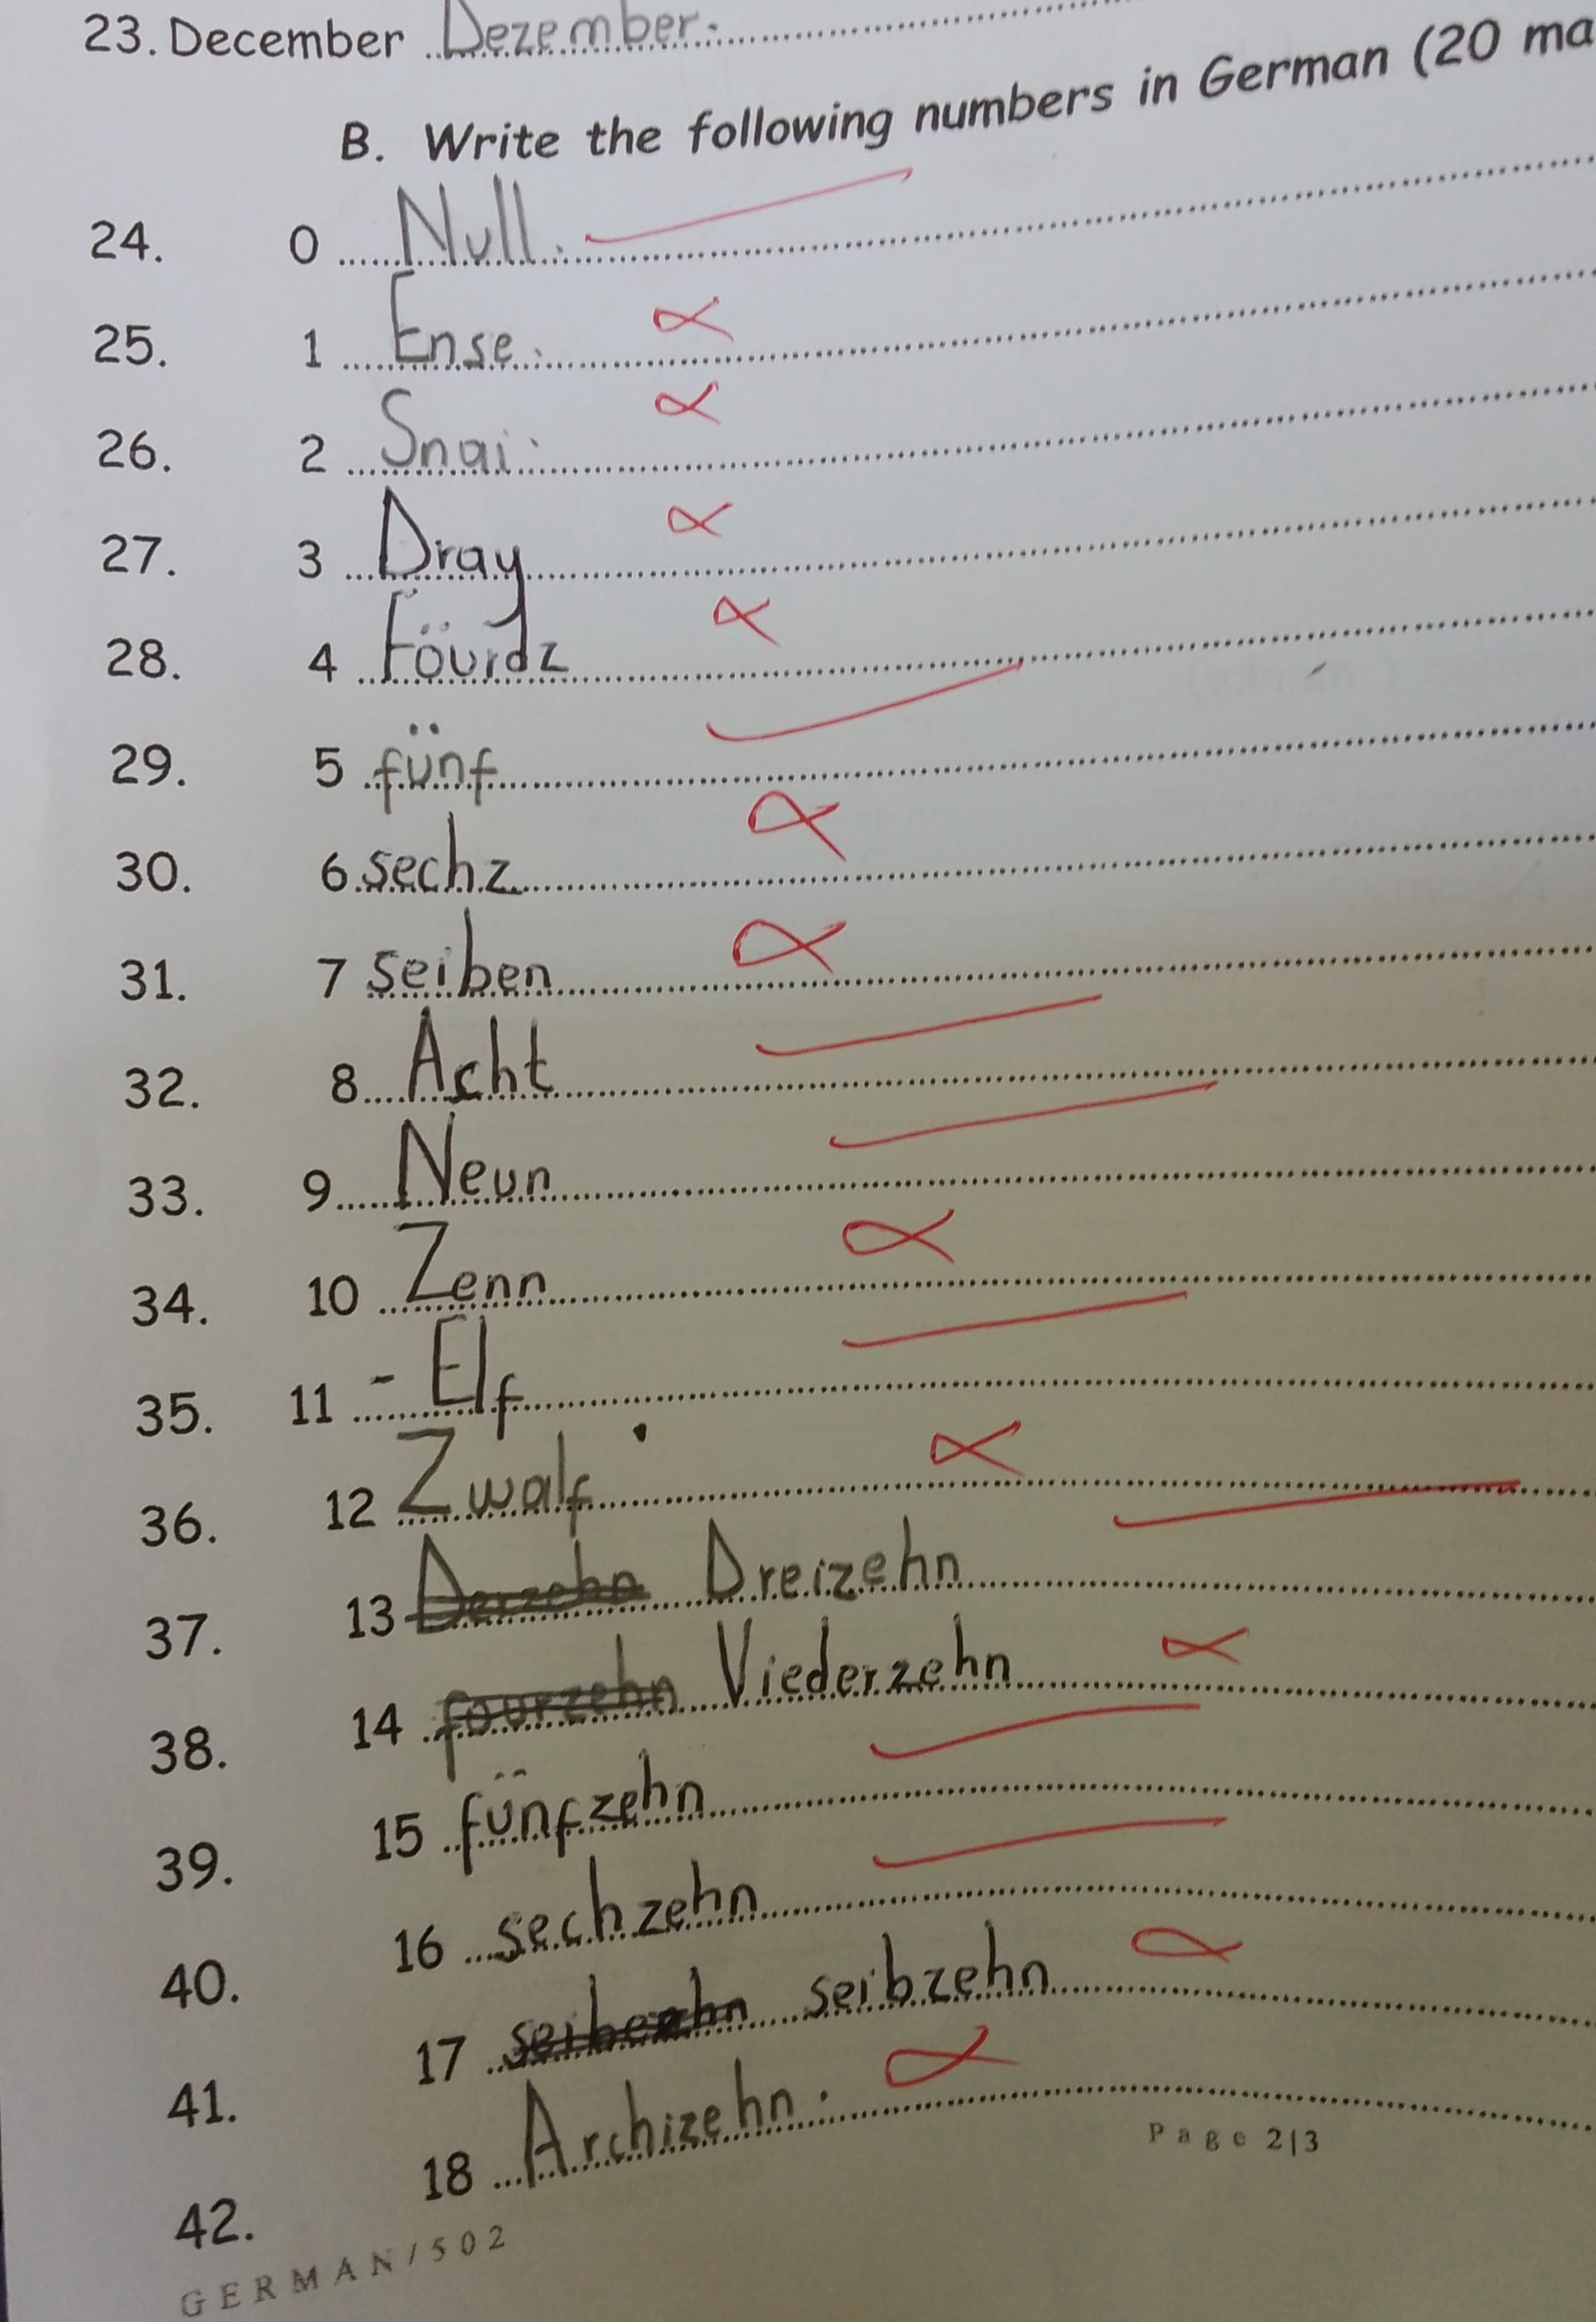 23. December Dezember.
B. Write the following numbers in German (20 ma
24. 0 Null.
25. 1 Ense.
26. 2 Snai.
27. 3 Dray
28. 4 Föurdz
29. 5 fünf
30. 6 sechz
31. 7 seiben
32. 8 Acht
33. 9 Neun
34. 10 Zenn
35. 11 - Elf
36. 12 Zwalf
37. 13 Derzehn Dreizehn
38. 14 fourzehn Viederzehn
39. 15 fünfzehn
40. 16 sechzehn
41. 17 seibzehn
42. 18 Archizehn.
Page 2|3
GERMAN/502